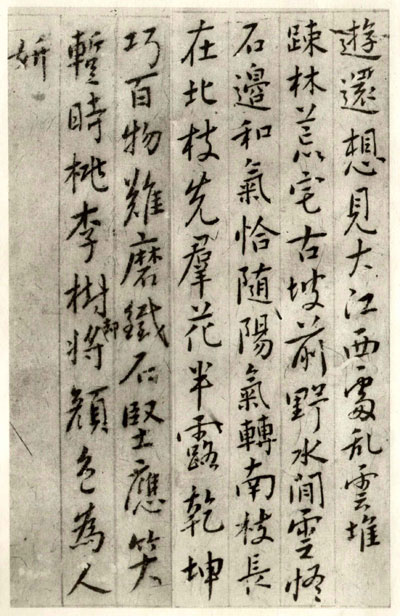 遊還想見大江西處乱雲堆
疎林荒宅古坡前野水閒雲怪
石邊和氣恰随陽氣轉南枝長
在北枝先羣花半露乾坤
巧百物難磨鐵石堅應笑
暫時桃李樹却将顔色為人
妍